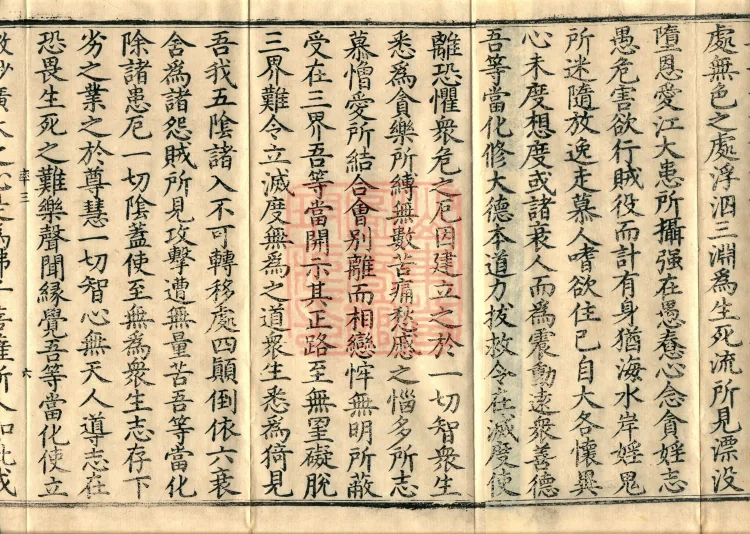 處無色之處浮泅三淵為生死流所見漂没
墮恩愛江大患所攝强在愚惷心念貪婬志
愚危害欲行賊役而計有身猶海水岸婬鬼
所迷隨放逸走慕人嗜欲住已自大各懷異
心未度想度或諸衰人而為震動遠衆善德
吾等當化修大德本道力拔救令在滅度使
離恐懼衆危之厄因建立之於一切智衆生
悉為貪樂所縛無數苦痛愁慼之惱多所志
慕憎愛所結合會别離而相戀無明所蔽
受在三界吾等當開示其正路至無罣礙脫
三界難令立滅度無為之道衆生悉為猗見
吾我五陰諸入不可轉移處四顛倒依六衰
舍為諸怨賊所見攻擊遭無量苦吾等當化
除諸患厄一切陰蓋使至無為衆生志存下
劣之業之於尊慧一切智心無天人導志在
恐畏生死之難樂聲聞緣覺吾等當化使立
三 六